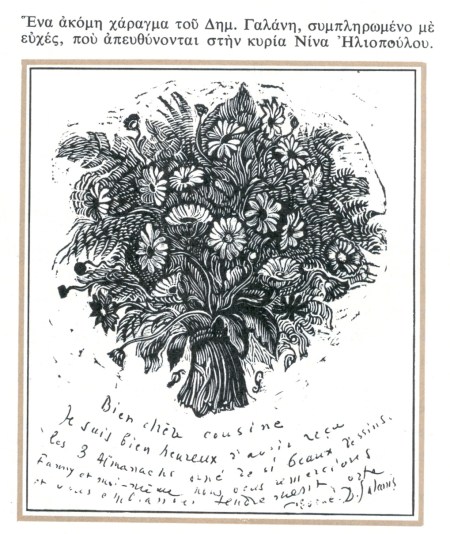 Ἕνα ἀκόμη χάραγμα τοῦ Δημ. Γαλάνη, συμπληρωμένο μὲ
εὐχές, ποὺ ἀπευθύνονται στὴν κυρία Νίνα Ἠλιοπούλου.
Bien chère cousine
Je suis bien heureux d'avoir reçu
les 3 Almanachs orné de si beaux dessins.
Fanny et moi-même nous vous remercions
et vous embrassons tendrement
D. Galanis